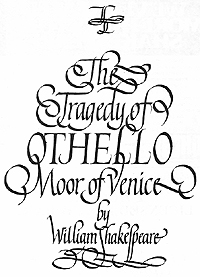 The
Tragedy of
OTHELLO
Moor of Venice
by
William Shakespeare